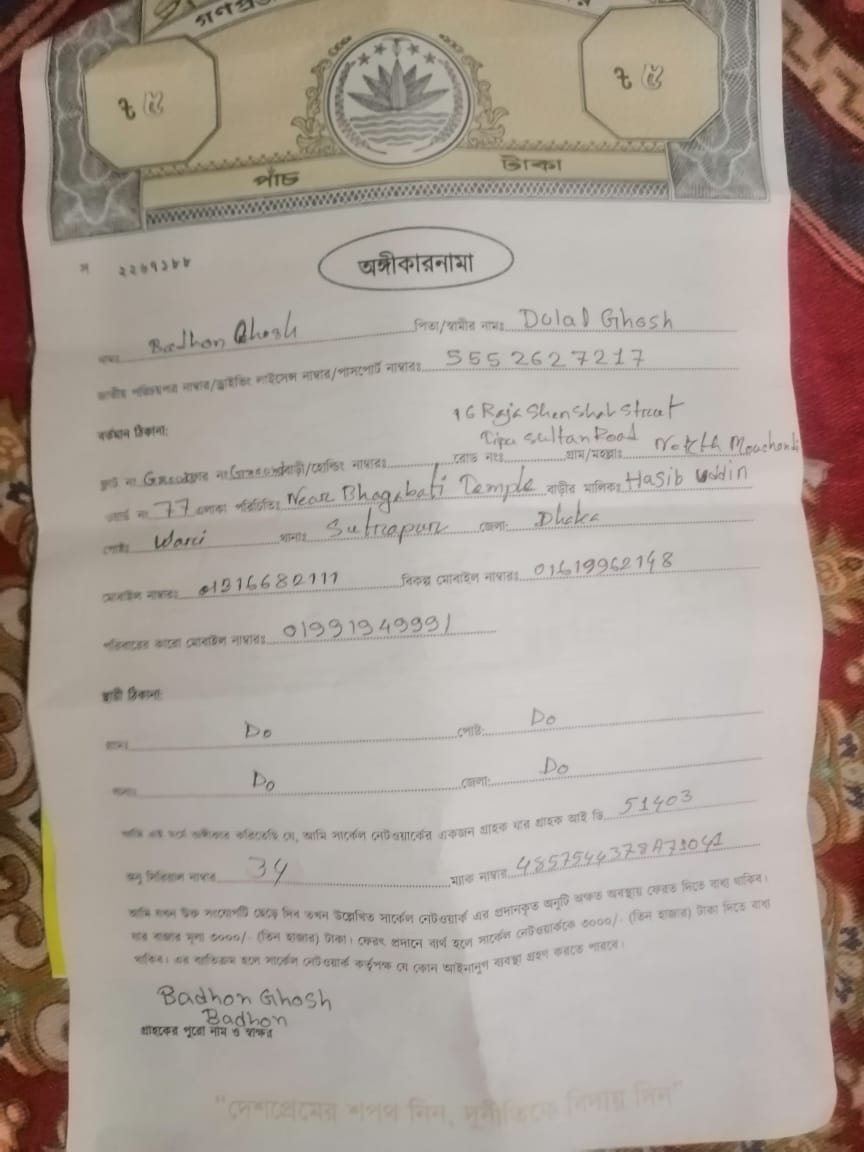 ৳ ৫ ৳ ৫
পাঁচ টাকা
২২৬৭১৮৮
অঙ্গীকারনামা
নামঃ Badhon Ghosh পিতা/স্বামীর নামঃ Dulal Ghosh
জাতীয় পরিচয়পত্র নাম্বার/ড্রাইভিং লাইসেন্স নাম্বার/পাসপোর্ট নাম্বারঃ 5552627217
বর্তমান ঠিকানা:
16 Raja Shenshah Street
Tipu Sultan Road North Moushandi
বাড়ী/হোল্ডিং নাম্বারঃ রোড নংঃ গ্রাম/মহল্লাঃ
ওয়ার্ড নং 77 এলাকা পরিচিতিঃ Near Bhagabati Temple বাড়ীর মালিকঃ Hasib Uddin
পোষ্টঃ Wari থানাঃ Sutrapur জেলা: Dhaka
মোবাইল নাম্বারঃ 01316682111 বিকল্প মোবাইল নাম্বারঃ 01619962148
পরিবারের কারো মোবাইল নাম্বারঃ 01991949991
স্থায়ী ঠিকানা:
গ্রামঃ Do পোষ্ট: Do
থানাঃ Do জেলা: Do
আমি এই মর্মে অঙ্গীকার করিতেছি যে, আমি সার্কেল নেটওয়ার্কের একজন গ্রাহক যার গ্রাহক আই ডি 51403
অনু সিরিয়াল নাম্বার 34 ম্যাক নাম্বার 4857544378A79041
আমি যখন উক্ত সংযোগটি ছেড়ে দিব তখন উল্লেখিত সার্কেল নেটওয়ার্ক এর প্রদানকৃত অনুটি অক্ষত অবস্থায় ফেরত দিতে বাধ্য থাকিব।
যার বাজার মূল্য ৩০০০/- (তিন হাজার) টাকা। ফেরৎ প্রদানে ব্যর্থ হলে সার্কেল নেটওয়ার্ককে ৩০০০/- (তিন হাজার) টাকা দিতে বাধ্য
থাকিব। এর ব্যতিক্রম হলে সার্কেল নেটওয়ার্ক কর্তৃপক্ষ যে কোন আইনানুগ ব্যবস্থা গ্রহণ করতে পারবে।
Badhon Ghosh
Badhon
গ্রাহকের পুরো নাম ও স্বাক্ষর
"দেশপ্রেমের শপথ নিন, দুর্নীতিকে বিদায় দিন"